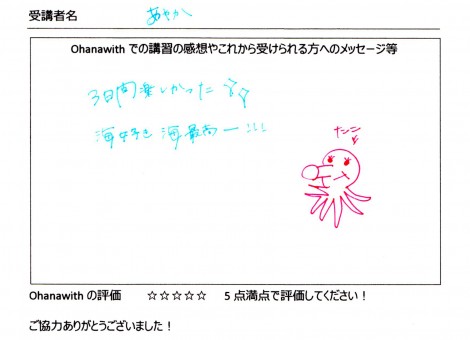 受講者名 あやか
Ohanawith での講習の感想やこれから受けられる方へのメッセージ等
3日間楽しかった☆☆
海好き 海最高ー!!!
Ohanawith の評価 ☆☆☆☆☆ 5点満点で評価してください!
ご協力ありがとうございました!